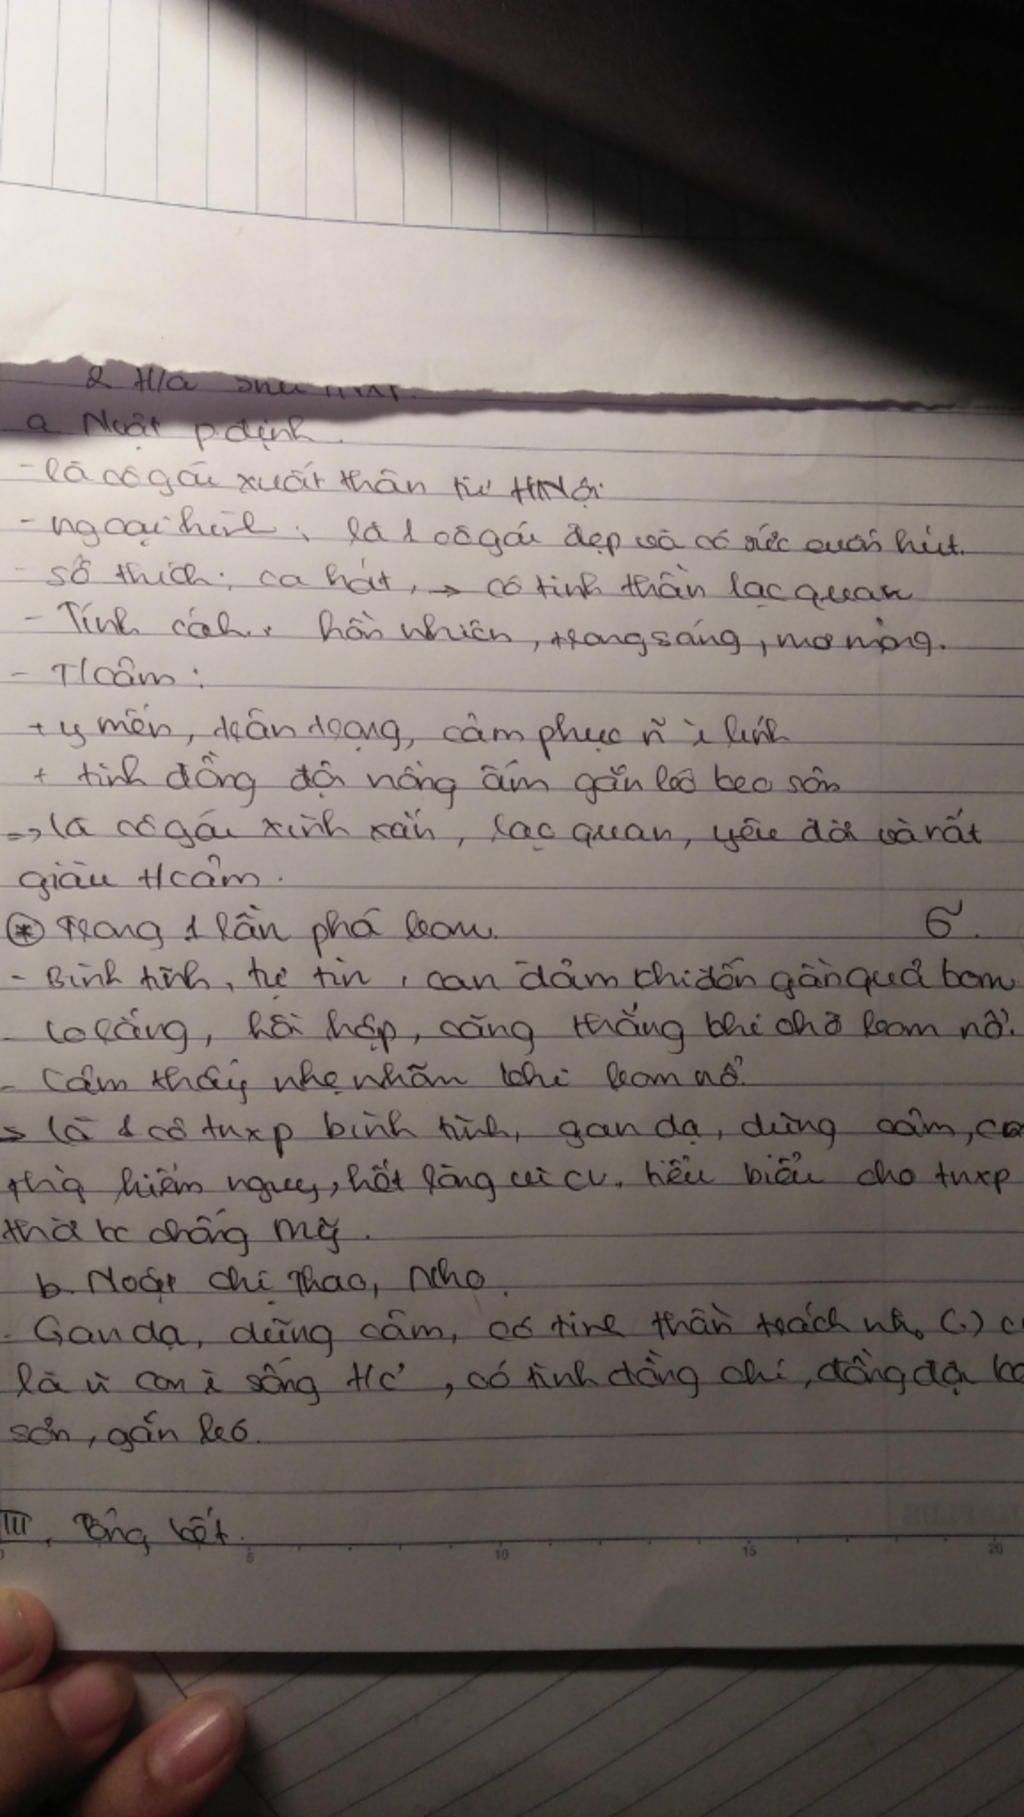 2. H/a
a. Nvật P.định.
- là cô gái xuất thân từ HNội
- ngoại hình: là 1 cô gái đẹp và có sức cuốn hút.
- sở thích: ca hát, → có tinh thần lạc quan
- Tính cách: hồn nhiên, trong sáng, mơ mộng.
- T/cảm:
+ y mến, trân trọng, cảm phục n̄ ì lính
+ tình đồng đội nồng ấm gắn bó keo sơn
=> là cô gái xinh xắn, lạc quan, yêu đời và rất
giàu t/cảm.
* Trong 1 lần phá bom. 6.
- Bình tĩnh, tự tin, can đảm khi đến gần quả bom
- lo lắng, hồi hộp, căng thẳng khi chờ bom nổ.
- Cảm thấy nhẹ nhõm khi bom nổ.
=> là 1 cô tnxp bình tĩnh, gan dạ, dũng cảm, coi
thg hiểm nguy, hết lòng vì cv. tiêu biểu cho tnxp
thời kc chống Mỹ.
b. Nvật chị Thao, Nho.
- Gan dạ, dũng cảm, có tinh thần trách nh. (.) c
là ~ con ì sống t/c', có tình đồng chí, đồng đội keo
sơn, gắn bó.
III. Tổng kết.
5 10 15 20